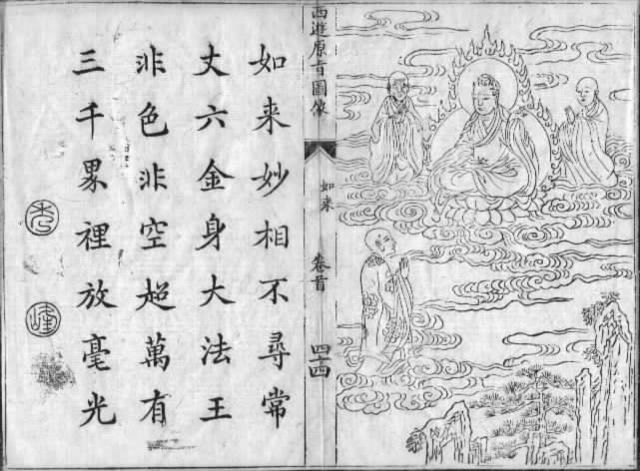 西遊原旨圖像
如来
卷首
四十四
如来妙相不尋常
丈六金身大法王
非色非空超萬有
三千界裡放毫光